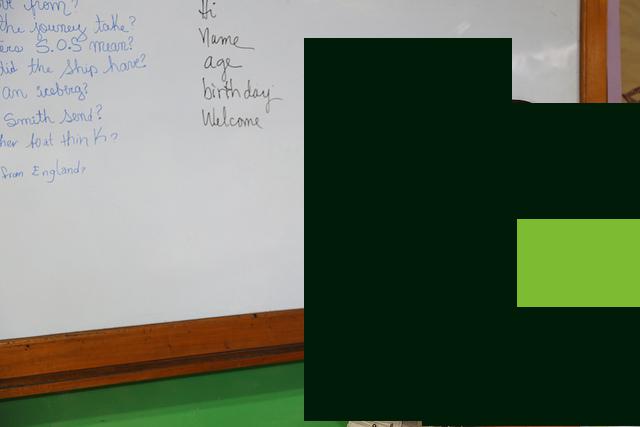 from?
the journey take?
S.O.S mean?
did the ship have?
an iceberg?
Smith send?
her boat think?
from England?
Hi
Name
age
birthday
Welcome